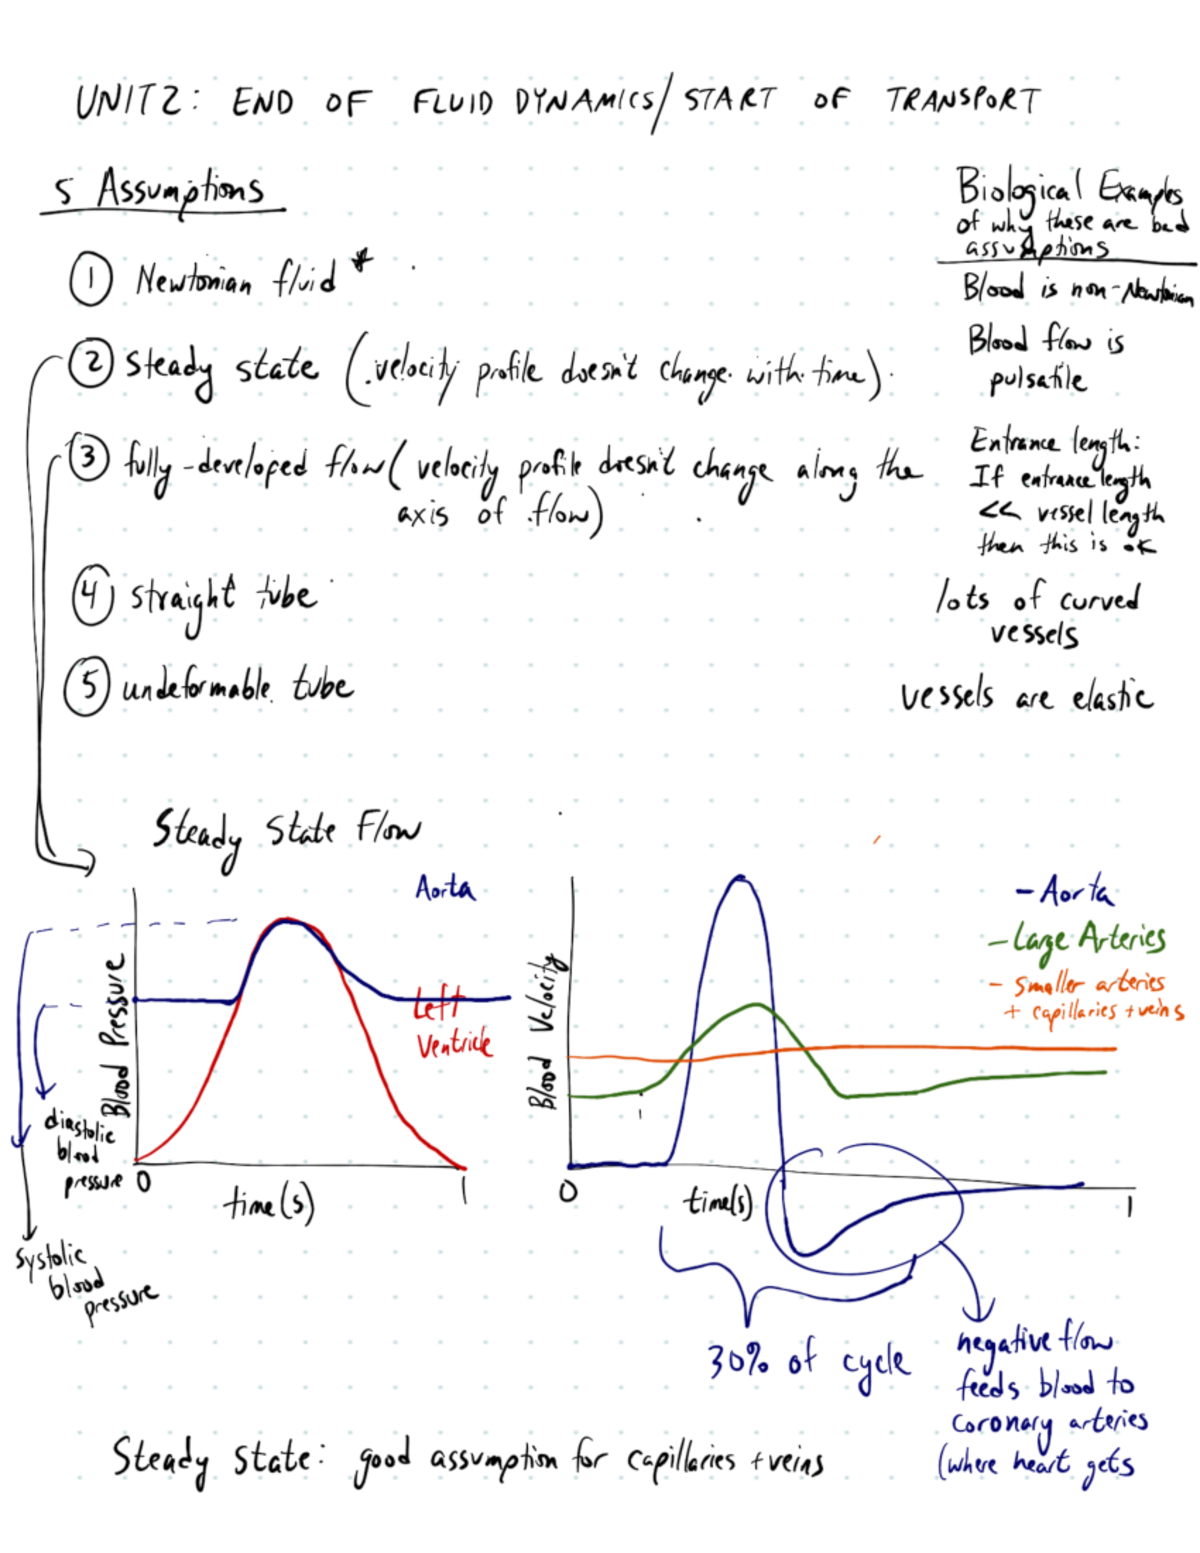 UNIT 2: END OF FLUID DYNAMICS/START OF TRANSPORT
5 Assumptions
Biological Examples
of why these are bad
assumptions
① Newtonian fluid *
Blood is non-Newtonian
② steady state (velocity profile doesn't change with time)
Blood flow is
pulsatile
③ fully-developed flow (velocity profile doesn't change along the
axis of flow)
Entrance length:
If entrance length
<< vessel length
then this is OK
④ straight tube
lots of curved
vessels
⑤ undeformable tube
vessels are elastic
Steady State Flow
Aorta
Left
Ventricle
Blood Pressure
diastolic
blood
pressure
systolic
blood
pressure
0
time(s)
1
- Aorta
- Large Arteries
- smaller arteries
+ capillaries + veins
Blood Velocity
0
time(s)
1
30% of cycle
negative flow
feeds blood to
coronary arteries
(where heart gets
Steady state: good assumption for capillaries + veins